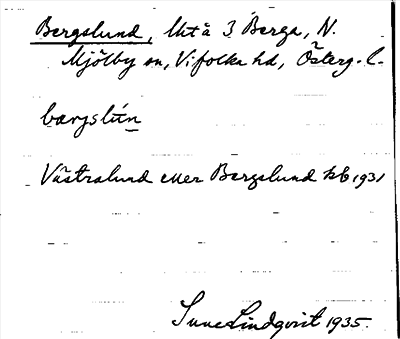 Bergslund, Utå 3 Berga, N.
Mjölby sn, Vifolka hd, Österg. l.
bærjslún
Västralund eller Bergslund kb 1931
Sune Lindqvist 1935.